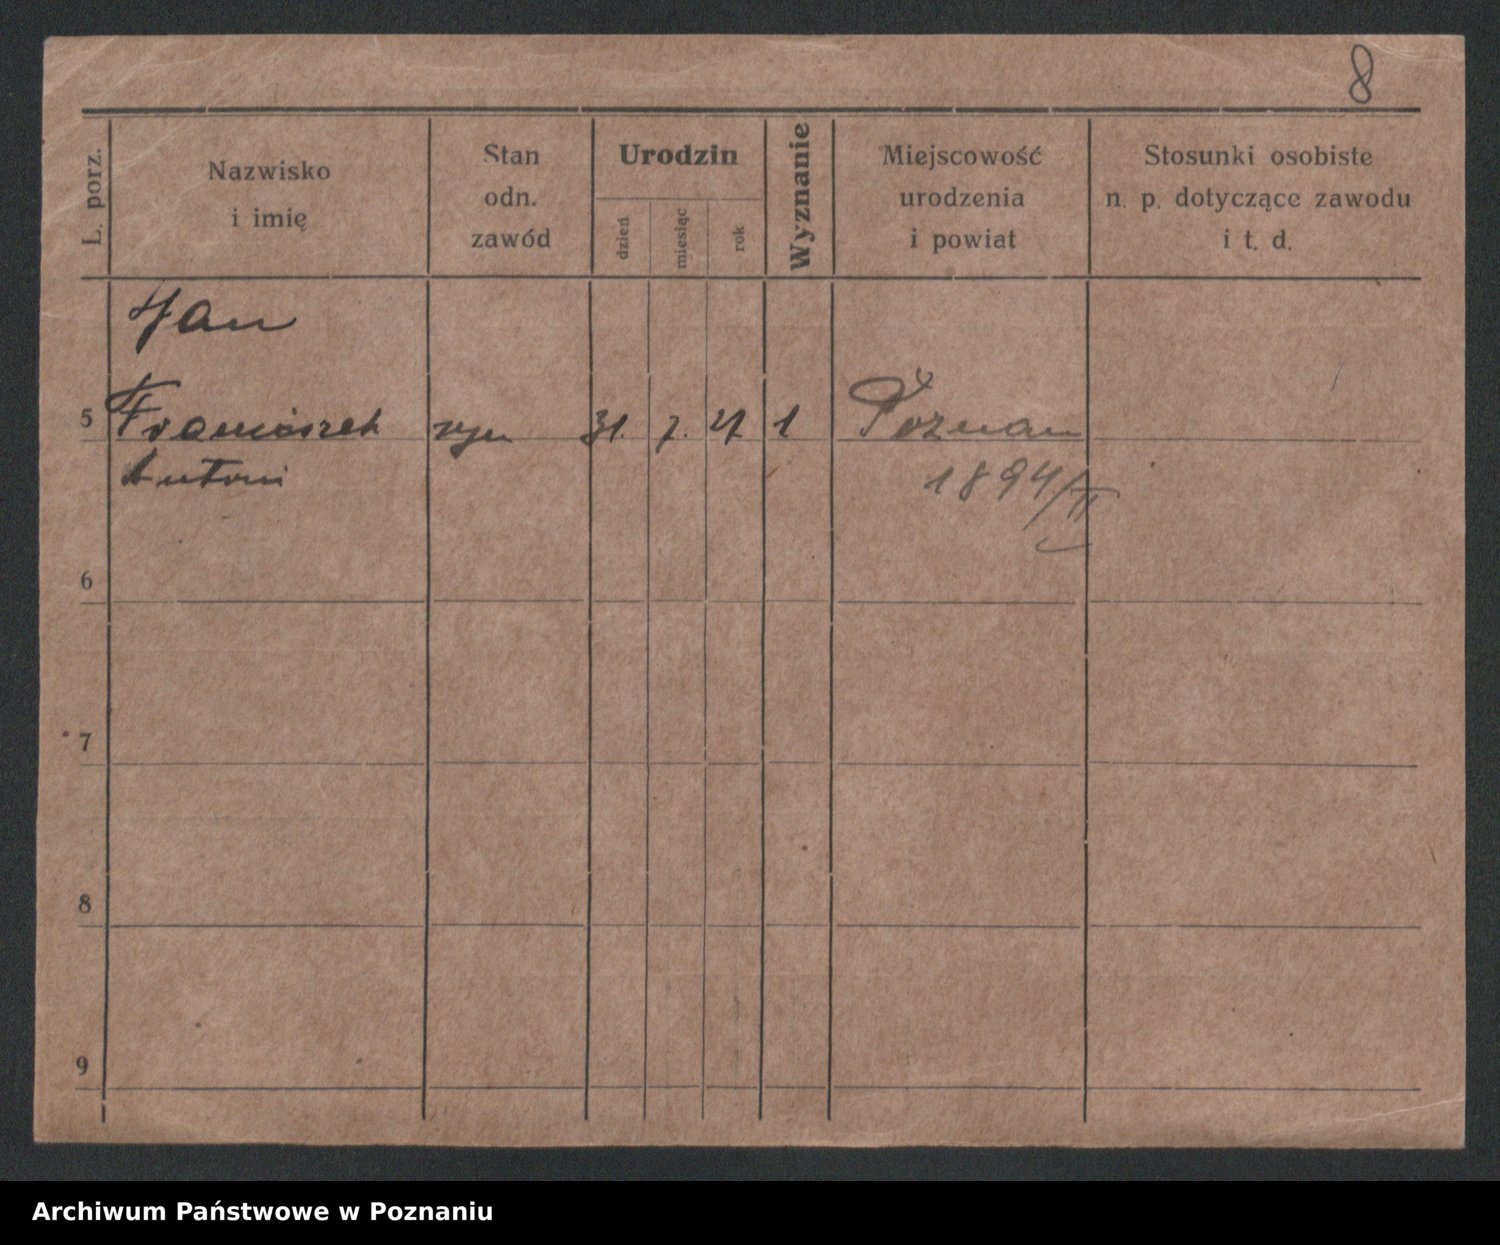 8
L. porz.
Nazwisko
i imię
Stan
odn.
zawód
Urodzin
dzień
miesiąc
rok
Wyznanie
Miejscowość
urodzenia
i powiat
Stosunki osobiste
n. p. dotyczące zawodu
i t. d.
Jan
5 Franciszek syn 31. 7. 1 Poznan
Antoni 1894/II
6
7
8
9
Archiwum Państwowe w Poznaniu